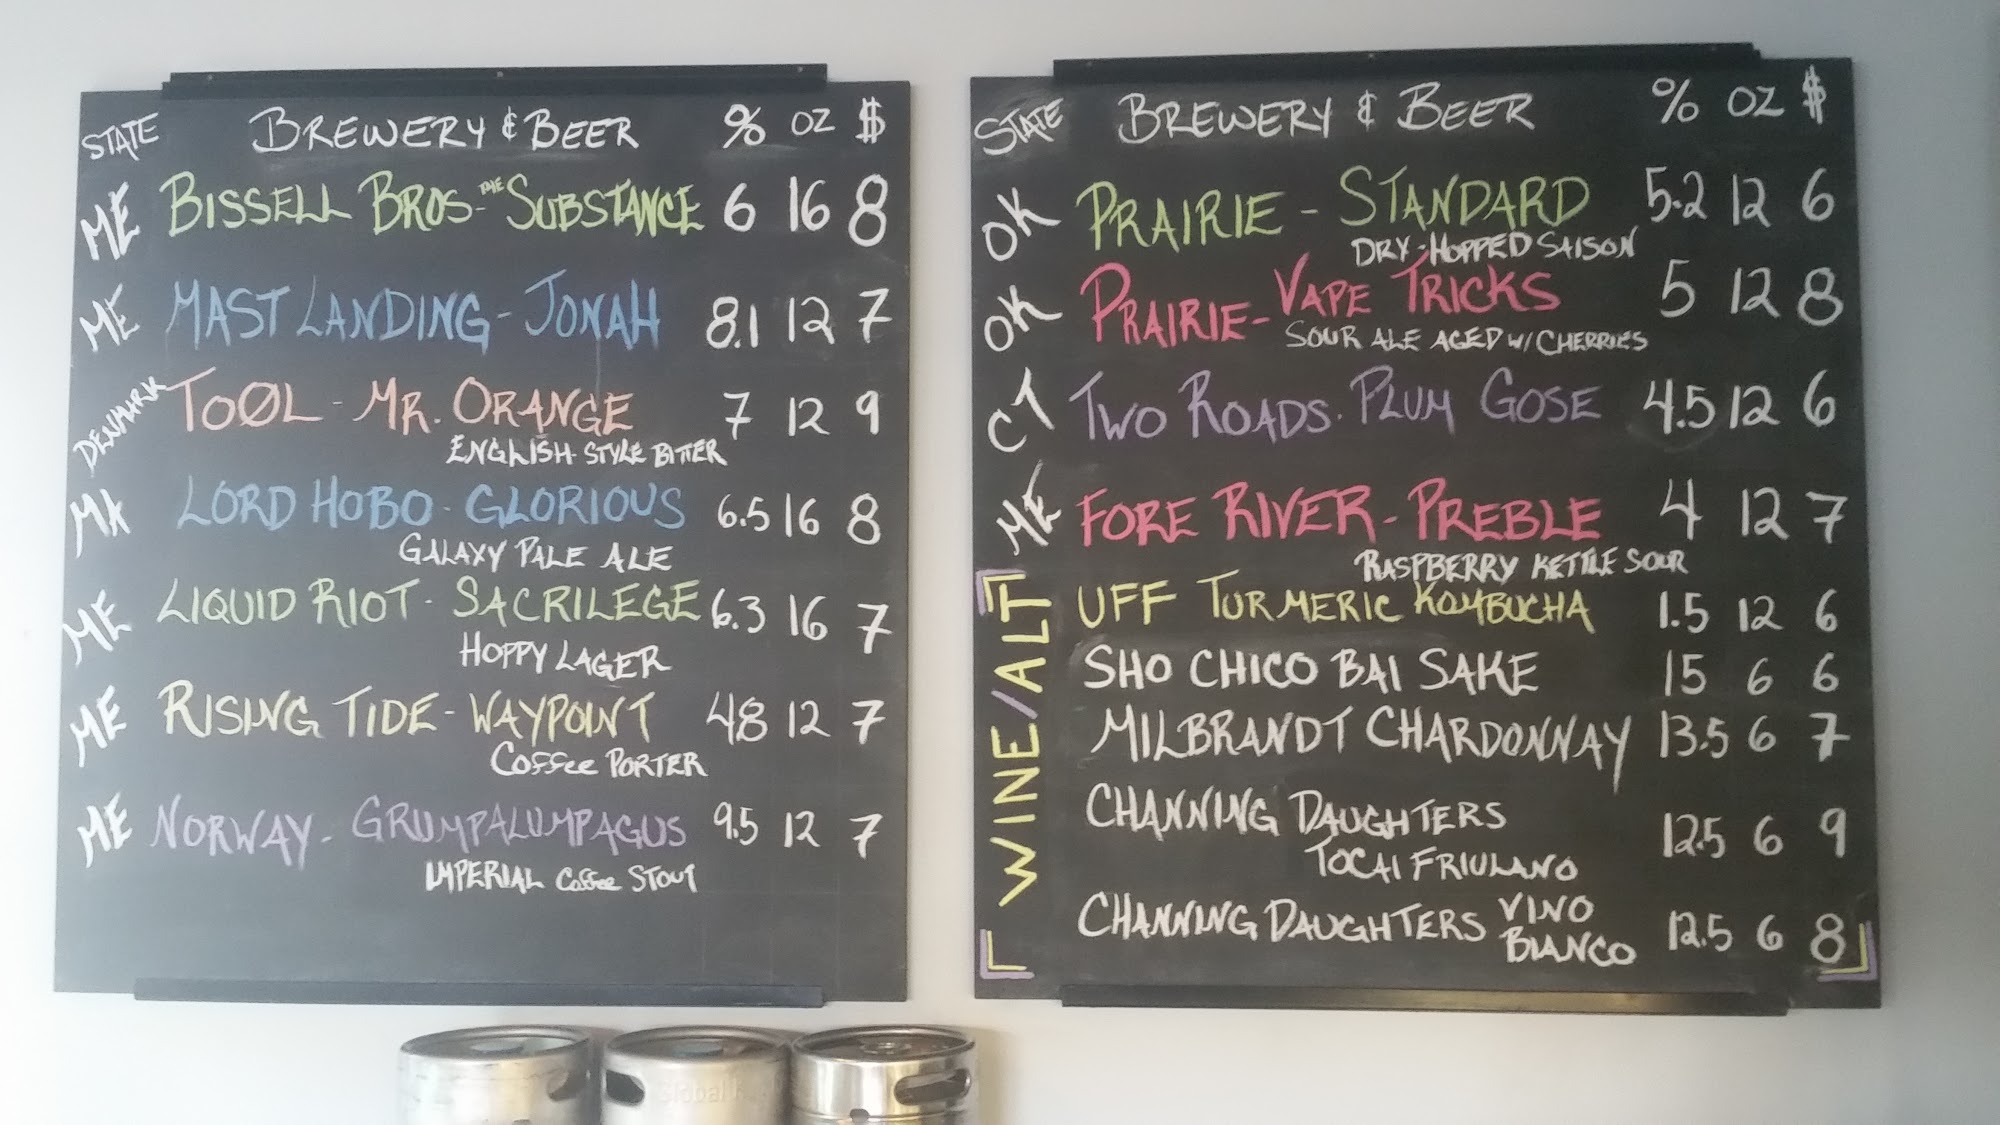 STATE BREWERY & BEER % OZ $
ME BISSELL BROS - THE SUBSTANCE 6 16 8
ME MAST LANDING - JONAH 8.1 12 7
DENMARK TOØL - MR. ORANGE 7 12 9
ENGLISH STYLE BITTER
MA LORD HOBO - GLORIOUS 6.5 16 8
GALAXY PALE ALE
ME LIQUID RIOT - SACRILEGE 6.3 16 7
HOPPY LAGER
ME RISING TIDE - WAYPOINT 4.8 12 7
COFFEE PORTER
ME NORWAY - GRUMPALUMPAGUS 9.5 12 7
IMPERIAL COFFEE STOUT
STATE BREWERY & BEER % OZ $
OK PRAIRIE - STANDARD 5.2 12 6
DRY-HOPPED SAISON
OK PRAIRIE - VAPE TRICKS 5 12 8
SOUR ALE AGED W/ CHERRIES
CT TWO ROADS. PLUM GOSE 4.5 12 6
ME FORE RIVER - PREBLE 4 12 7
RASPBERRY KETTLE SOUR
WINE/ALT
UFF TURMERIC KOMBUCHA 1.5 12 6
SHO CHICO BAI SAKE 15 6 6
MILBRANDT CHARDONNAY 13.5 6 7
CHANNING DAUGHTERS
TOCAI FRIULANO 12.5 6 9
CHANNING DAUGHTERS VINO
BIANCO 12.5 6 8
Global